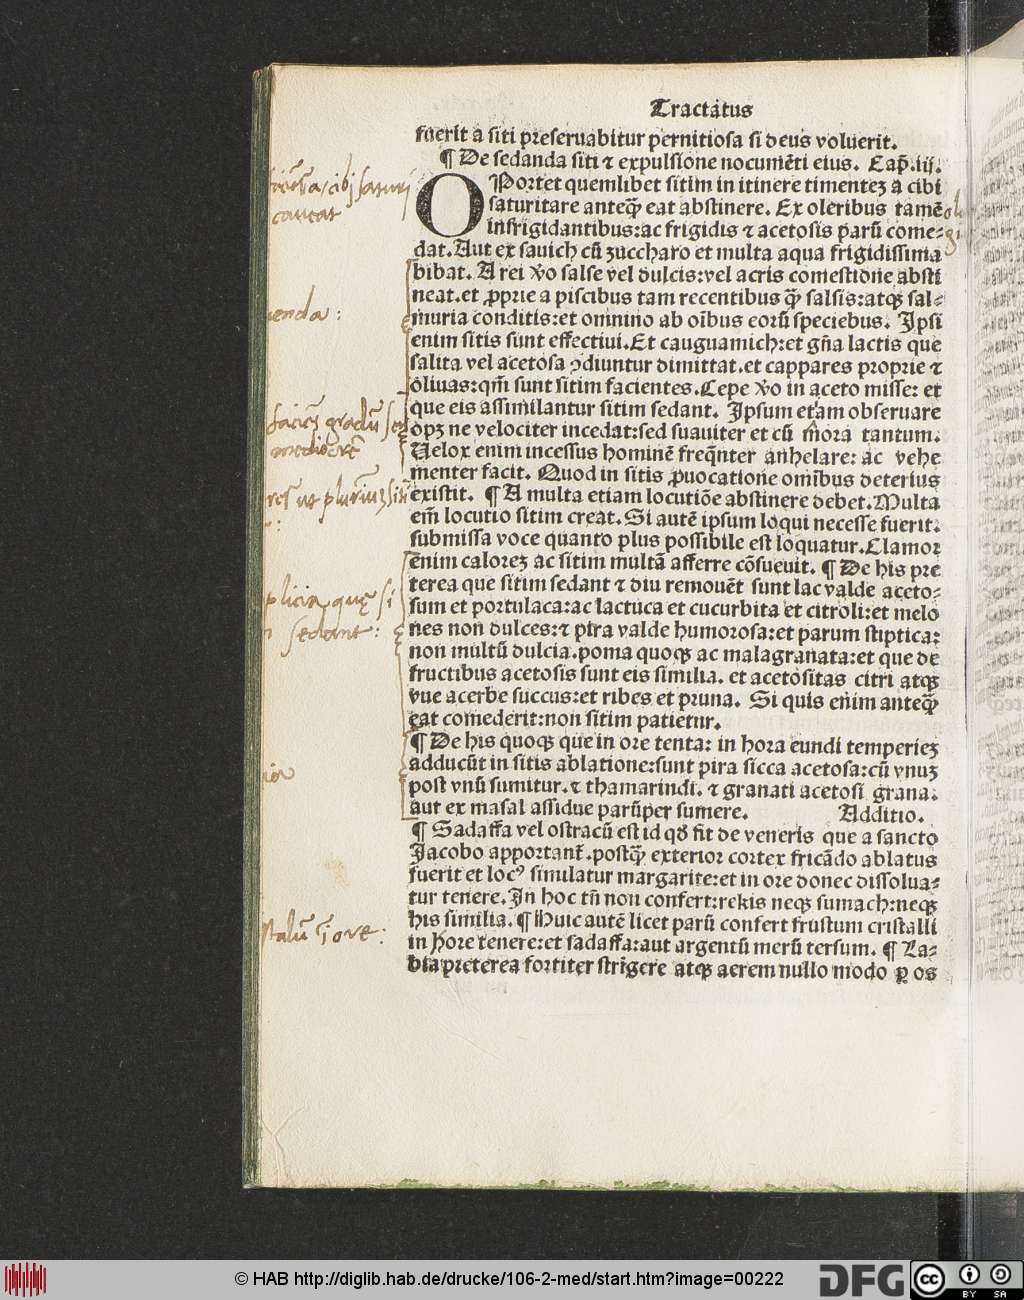 Tractatus
fuerit a siti preseruabitur pernitiosa si deus voluerit.
¶ De sedanda siti ⁊ expulsione nocumēti eius. Cap̄. iij.
OPortet quemlibet sitim in itinere timenteȝ a cibi
saturitare anteq̄ȝ eat abstinere. Ex oleribus tamē
infrigidantibus: ac frigidis ⁊ acetosis parū come-
dat. Aut ex sauich cū zuccharo et multa aqua frigidissima
bibat. A rei v̄o salse vel dulcis: vel acris comestione absti
neat. et ꝓprie a piscibus tam recentibus q̄ȝ salsis: atqꝫ sal-
muria conditis: et omnino ab oībus eorū speciebus. Ipsi
enim sitis sunt effectiui. Et cauguamich: et gn̄a lactis que
salita vel acetosa ꝯdiuntur dimittat. et cappares proprie ⁊
oliuas: qm̄ sunt sitim facientes. Cepe v̄o in aceto misse: et
que eis assimilantur sitim sedant. Ipsum etiam obseruare
opȝ ne velociter incedat: sed suauiter et cū mora tantum.
Uelox enim incessus hominē freq̄nter anhelare: ac vehe
menter facit. Quod in sitis ꝓuocatione omībus deterius
existit. ¶ A multa etiam locutiōe abstinere debet. Multa
em̄ locutio sitim creat. Si autē ipsum loqui necesse fuerit:
submissa voce quanto plus possibile est loquatur. Clamor
enim caloreȝ ac sitim multā afferre cōsueuit. ¶ De his pre
terea que sitim sedant ⁊ diu remouēt sunt lac valde aceto-
sum et portulaca: ac lactuca et cucurbita et citroli: et melo
nes non dulces: ⁊ pira valde humorosa: et parum stiptica:
non multū dulcia. poma quoqꝫ ac malagranata: et que de
fructibus acetosis sunt eis similia. et acetositas citri atqꝫ
vue acerbe succus: et ribes et pruna. Si quis enim anteq̄ȝ
eat comederit: non sitim patietur.
¶ De his quoqꝫ que in ore tenta: in hora eundi temperieȝ
adducūt in sitis ablatione: sunt pira sicca acetosa: cū vnuȝ
post vnū sumitur. ⁊ thamarindi. ⁊ granati acetosi grana.
aut ex masal assidue parūper sumere. Additio.
¶ Sadaffa vel ostracū est id qd̄ fit de veneris que a sancto
Jacobo apportant̄. postq̄ȝ exterior cortex fricādo ablatus
fuerit et locꝰ similatur margarite: et in ore donec dissolua-
tur tenere. In hoc tn̄ non confert: rekis neqꝫ sumach: neqꝫ
his similia. ¶ Huic autē licet parū confert frustum cristalli
in hore tenere: et sadaffa: aut argentū merū tersum. ¶ La-
bia preterea fortiter strīgere atqꝫ aerem nullo modo ꝑ os
cibj saturi
caueat
enda:
facies gradū
mediocrē
res ut plurimū
plicia, quę si
sedant:
ior
stalū ī ore:
© HAB http://diglib.hab.de/drucke/106-2-med/start.htm?image=00222
DFG
cc
BY SA